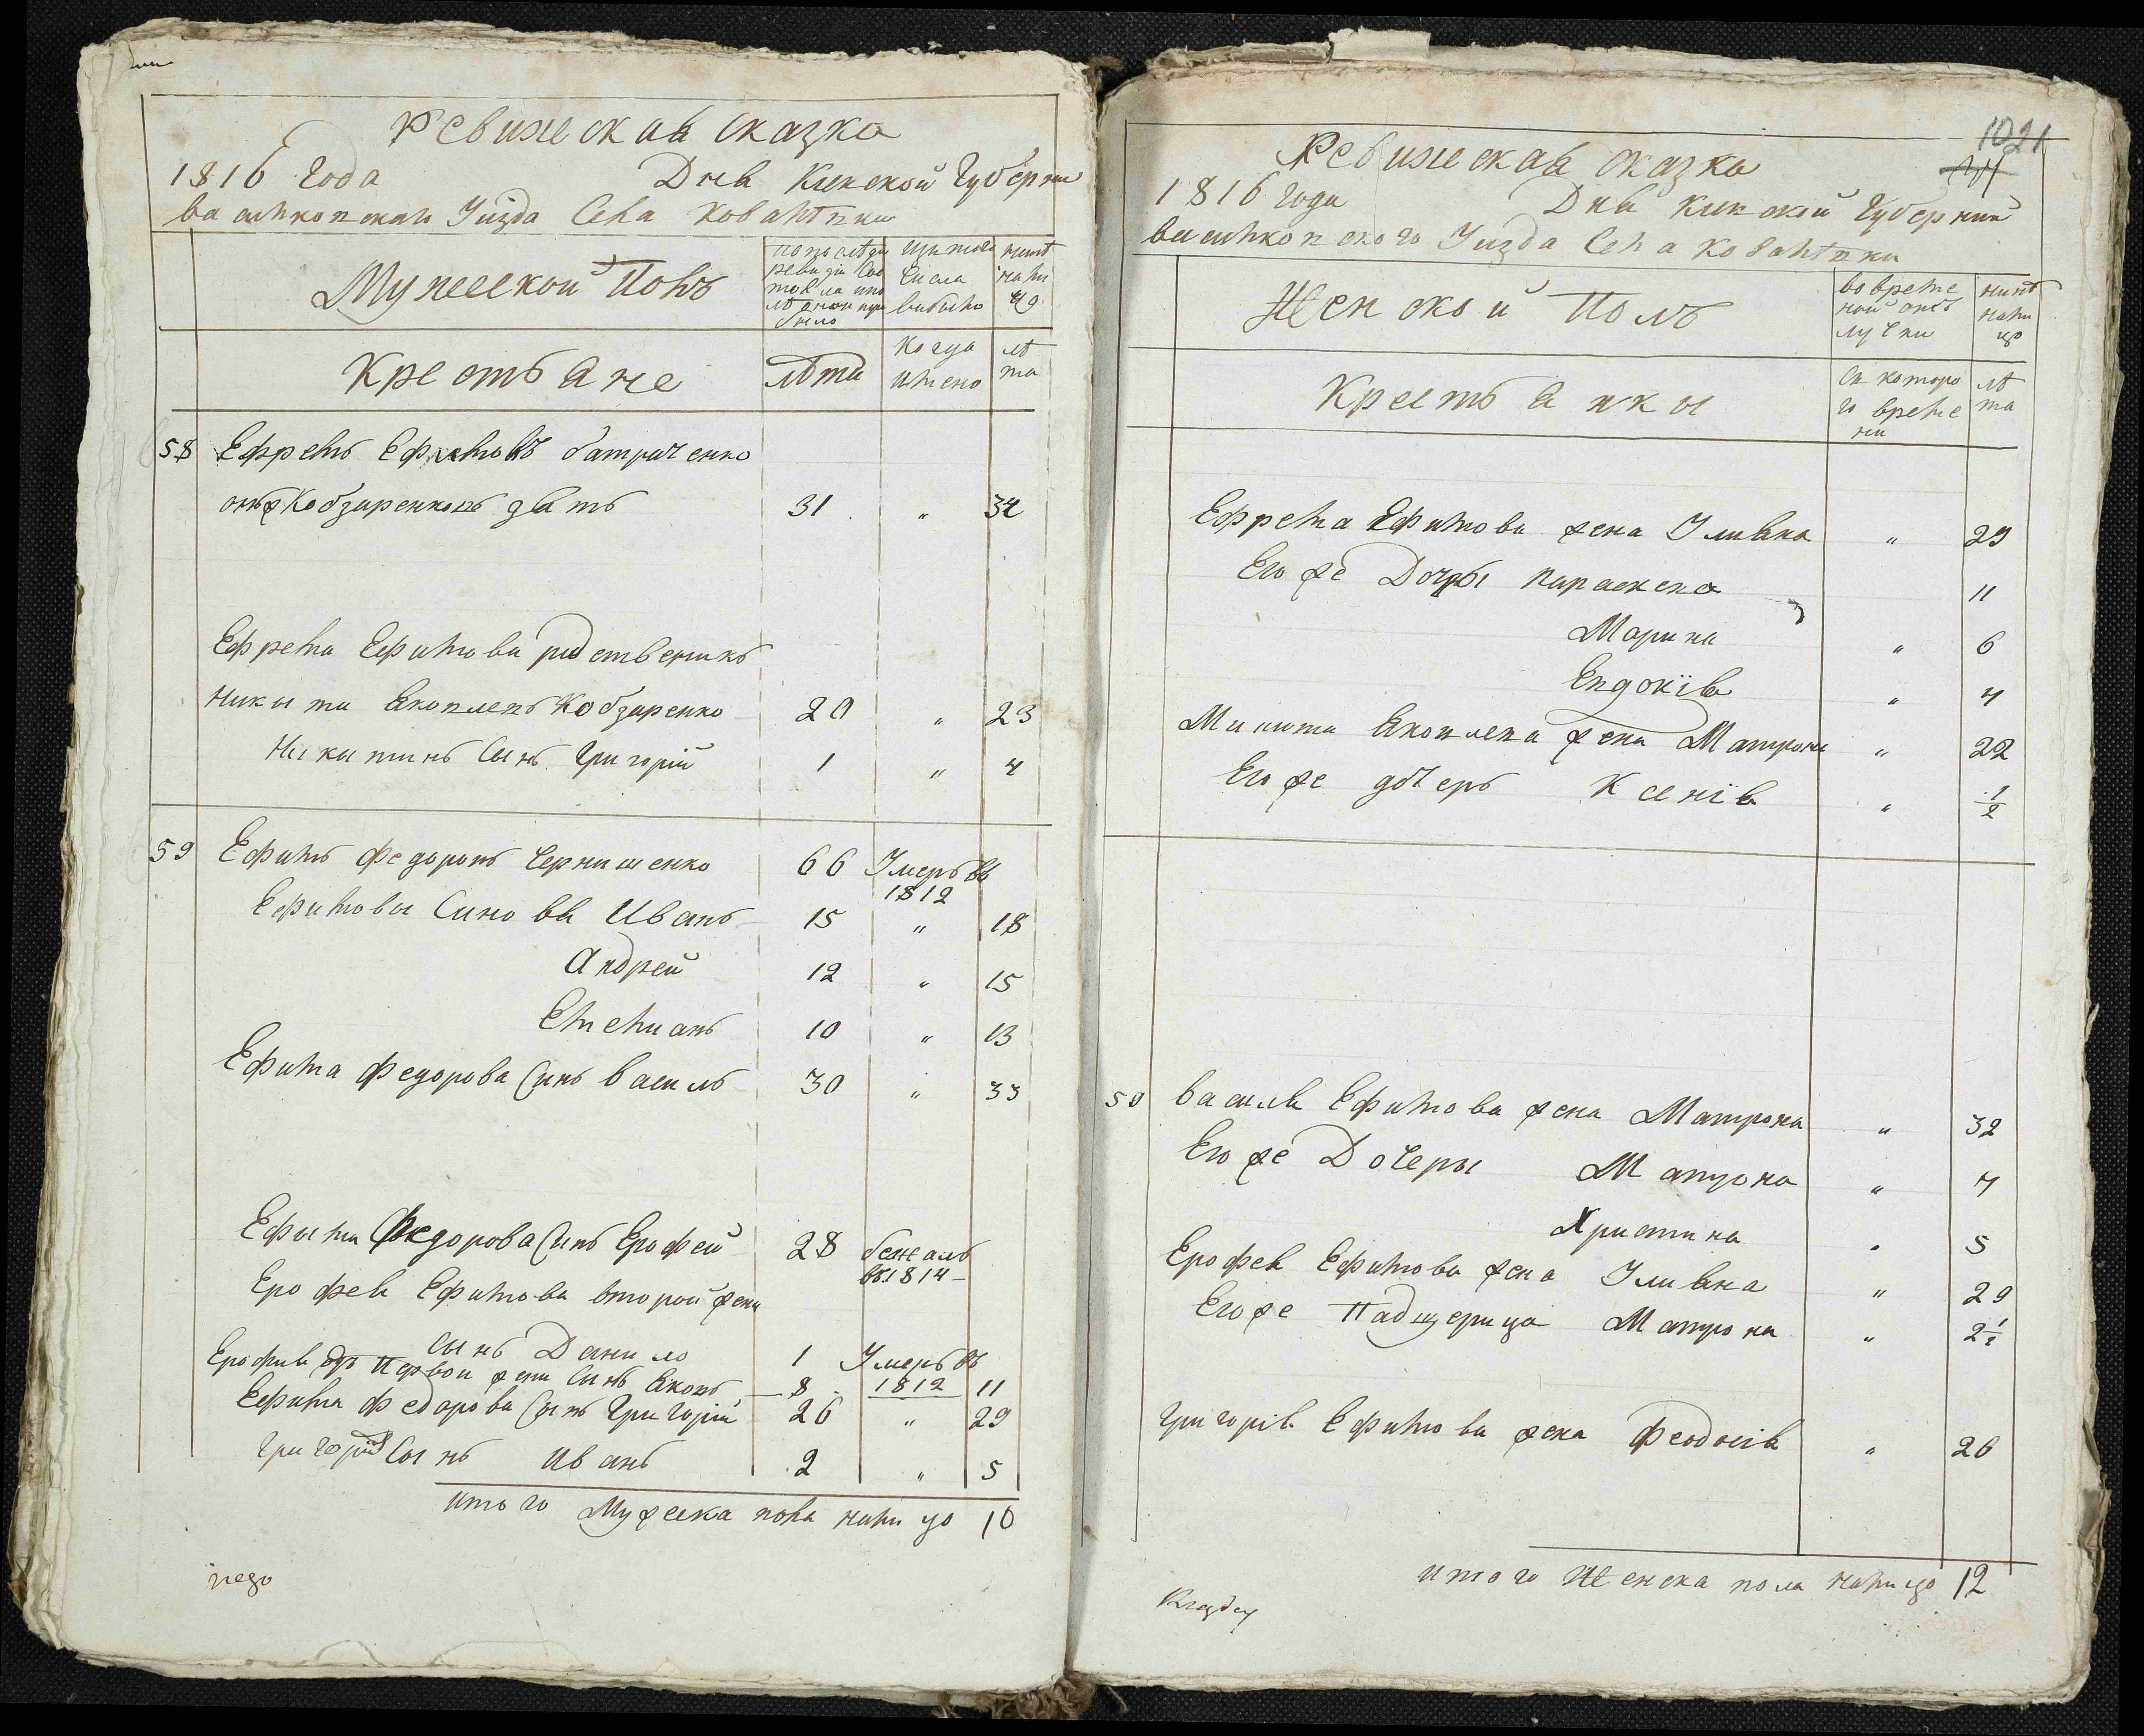 Ревижская сказка
1816 Года Дня Киевской Губернии
васильковскаго Уизда Села Ковалівки
Мужеской Полъ
По последней ревизіи состояло и после оной прибыло
Изъ того числа выбыло
Ныне на лицо
Крестьяне
лѣта
Когда имено
лѣта
58 Ефремъ Ефимовъ батриченко
онъ же Кобзаренковъ зять 31 " 34
Ефрема Ефимова родственикъ
Никыта Яковлевъ Кобзаренко 20 " 23
Никытинъ Сынъ Григорій 1 " 4
59 Ефимъ Федоровъ Чернишенко 66 Умеръ въ 1812
Ефимовы Синовя Иванъ 15 " 18
Андрей 12 " 15
Емелианъ 10 " 13
Ефима Федорова Синъ василь 30 " 33
Ефыма Федорова Синъ Ерофей 28 бежалъ въ 1814
Ерофея Ефимова второй жени
сынъ Данило 1 Умеръ въ 1812
Ерофия отъ первой жени Синъ Яковъ 8 11
Ефима Федорова Синъ Григорій 26 " 29
Григорія Сынъ Иванъ 2 " 5
итого Мужеска пола налицо 10
1021
Ревижская сказка
1816 года Дня Киевской Губерний
васильковского Уизда Села Ковалівки
Женской Полъ
во времено й отлучки
ныне на лицо
Крестьянкы
Съ которого времени
лѣта
Ефрема Ефимова жена Улияна " 29
Его же Дочери Параскева 11
Марина " 6
Евдокія " 4
Микита Яковлева жена Матрона " 22
Его же дочерь Ксенія " 1/2
59 василя Ефимова жена Матрона " 32
Его же Дочеры Матрона " 7
Христина " 5
Ерофея Ефимова жена Улияна " 29
Его же Падщерица Матрона " 2 1/2
Григорія Ефимова жена Феодосія " 26
итого Женска пола налицо 12